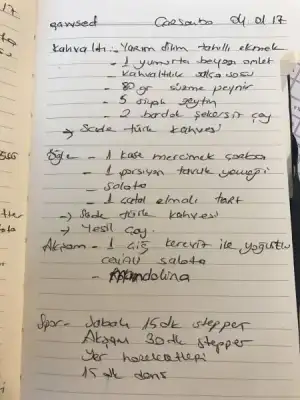 17
Çarşamba 04.01.17
Kahvaltı - Yarım dilim tahıllı ekmek
- 1 yumurta beyazı omlet
- kahvaltılık salça sosu
- 80 gr süzme peynir
- 5 siyah zeytin
- 2 bardak şekersiz çay
→ Sade türk kahvesi
Öğle - 1 kase mercimek çorbası
- 1 porsiyon tavuk yemeği
- Salata
- 1 çatal elmalı tart
→ Sade türk kahvesi
→ Yeşil çay.
Akşam - 1 çiğ kereviz ile yoğurtlu
cevizli salata
- Mandalina
Spor - Sabah 15 dk stepper
Akşam 30 dk stepper
Yer hareketleri
15 dk dans